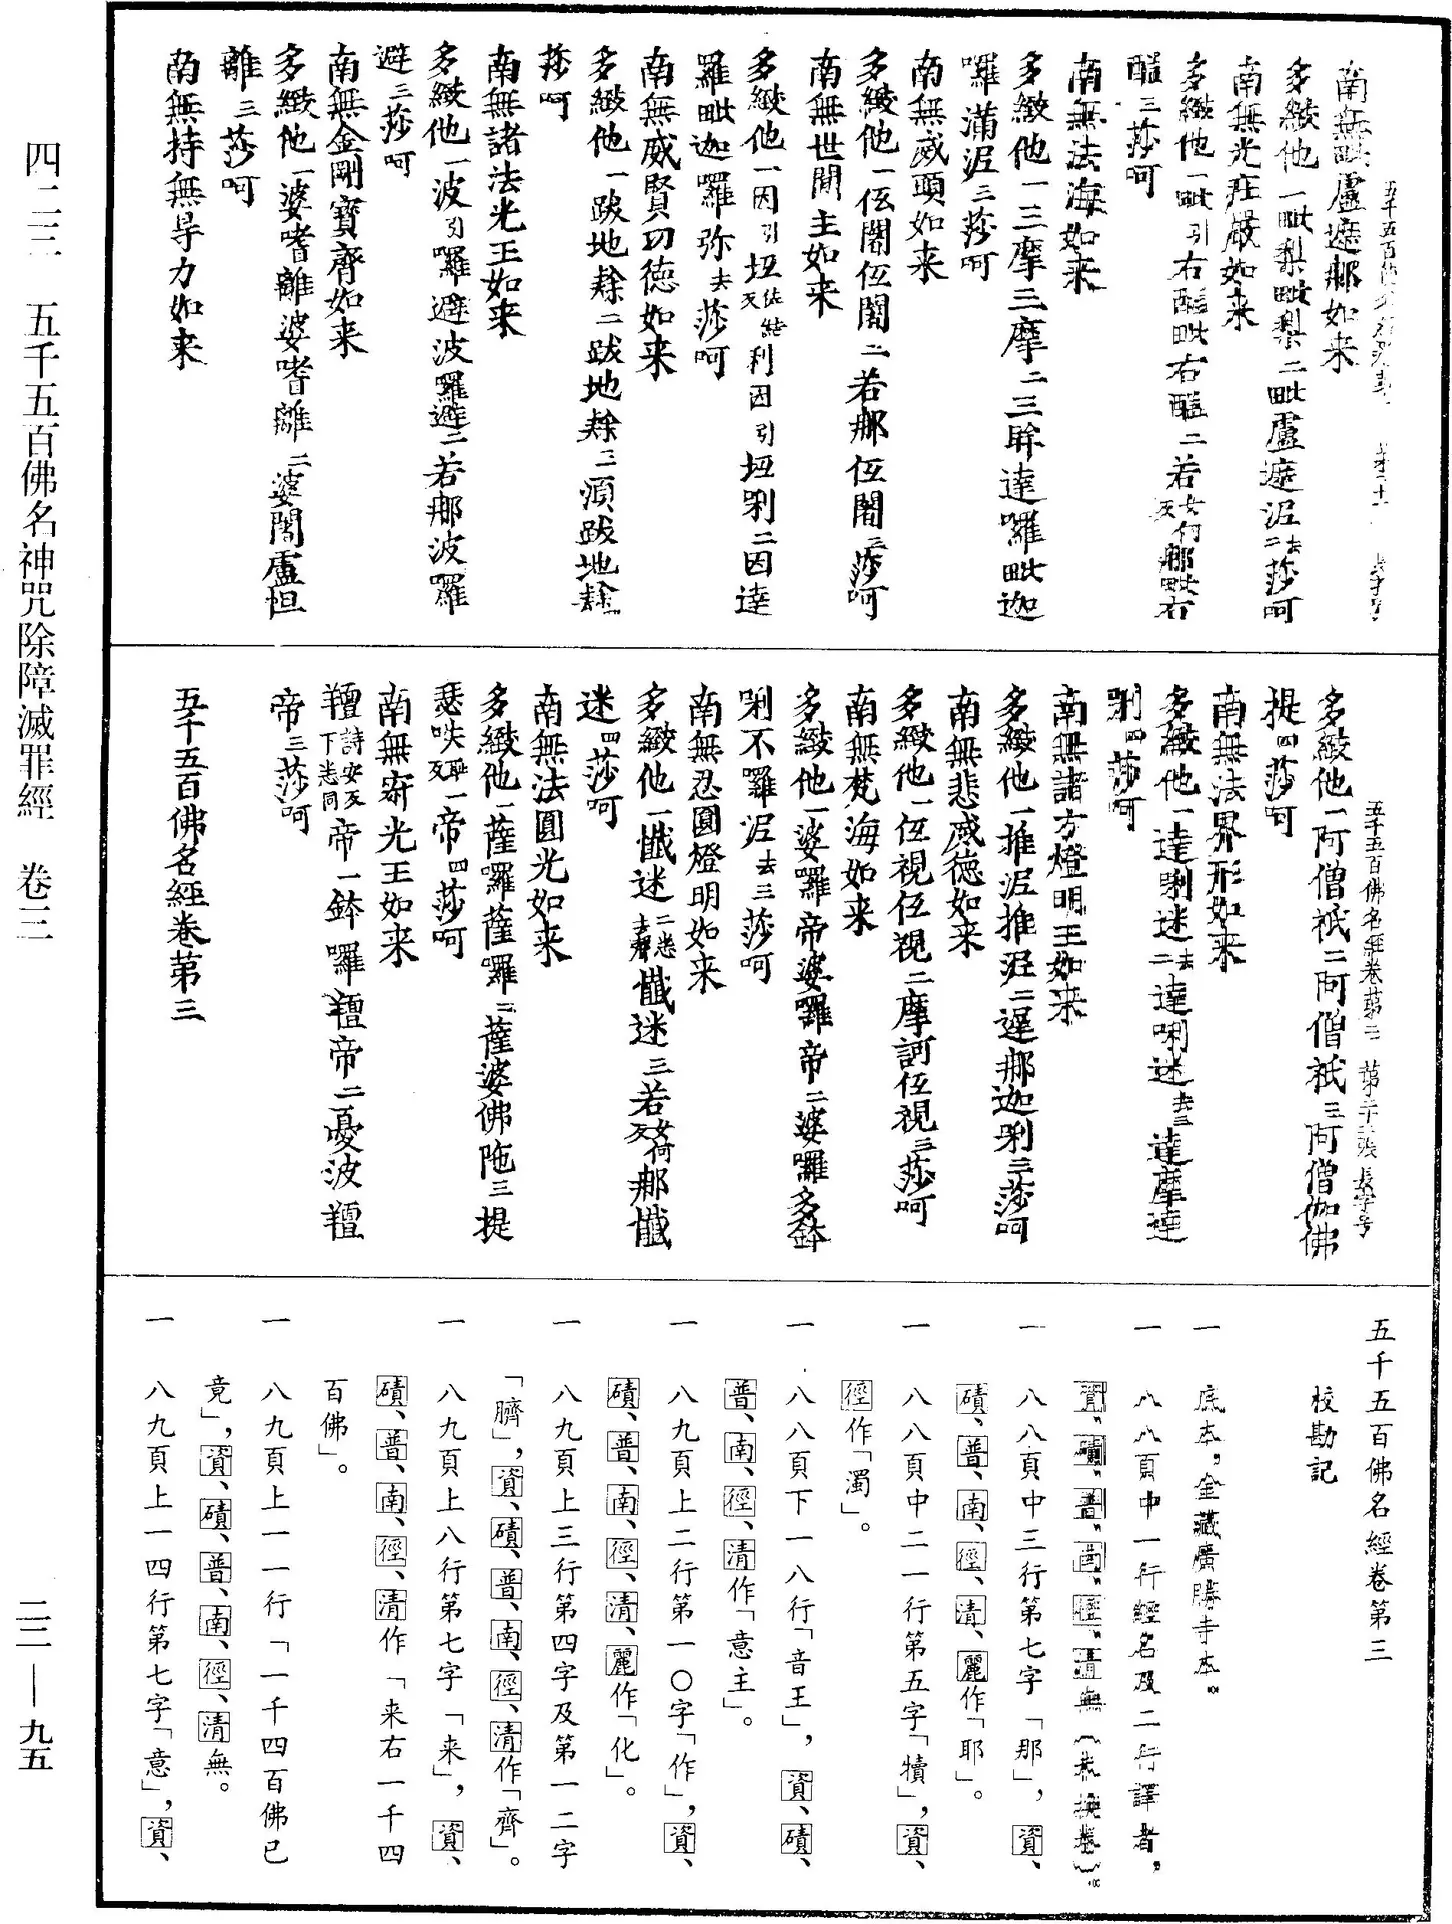 四二三　五千五百佛名神咒除障滅罪經　卷三
二二—九五
南無毗盧遮那如来
多緻他一毗梨毗梨二毗盧遮泥去二莎呵
南無光莊嚴如来
多緻他一毗引右醯毗右醯二若女何反那毗右
醯三莎呵
南無法海如来
多緻他一三摩三摩二三眸達囉毗迦
囉蒲泥三莎呵
南無威頭如来
多緻他一伍闍伍闍二若那伍闍三莎呵
南無世間主如来
多緻他一因引坻利因引坻唎二因達
羅毗迦羅弥去莎呵
南無威賢功德如来
多緻他一跋地䅘二跋地䅘三湏跋地䅘四
莎呵
南無諸法光王如来
多緻他一波引囉避波羅避二若那波羅
避三莎呵
南無金剛寶齊如来
多緻他一婆嗜離婆嗜離二婆闍盧怛
離三莎呵
南無持無㝵力如来
五千五百佛名經卷第三　第二十二張　長字号
多緻他一阿僧祇二阿僧祇三阿僧伽佛
提四莎呵
南無法界形如来
多緻他一達唎迷去二達唎迷去三達摩達
唎四莎呵
南無諸方燈明王如来
多緻他一推泥推泥二遲那迦唎三莎呵
南無悲威德如来
多緻他一伍視伍視二摩訶伍視三莎呵
南無梵海如来
多緻他一婆囉帝婆囉帝二婆囉多鉢
唎不羅泥去三莎呵
南無忍圓燈明如来
多緻他一懺迷二悉去聲懺迷三若女何反那懺
迷四莎呵
南無法圓光如来
多緻他一薩囉薩囉二薩婆佛陁三提
瑟咥反帝四莎呵
南無奇光王如来
羶詩安反下悉同帝一鉢囉羶帝二憂波羶
帝三莎呵
五千五百佛名經卷第三
五千五百佛名經卷第三
校勘記
一　底本，金藏廣勝寺本。
一　八八頁中一行經名及二行譯者，
資、磧、普、南、徑、清無（未換卷）。
一　八八頁中三行第七字「那」，資、
磧、普、南、徑、清、麗作「耶」。
一　八八頁中二一行第五字「犢」，資、
徑作「濁」。
一　八八頁下一八行「音王」，資、磧、
普、南、徑、清作「意主」。
一　八九頁上二行第一〇字「作」，資、
磧、普、南、徑、清、麗作「化」。
一　八九頁上三行第四字及第一二字
「臍」，資、磧、普、南、徑、清作「齊」。
一　八九頁上八行第七字「来」，資、
磧、普、南、徑、清作「来右一千四
百佛」。
一　八九頁上一一行「一千四百佛已
竟」，資、磧、普、南、徑、清無。
一　八九頁上一四行第七字「意」，資、